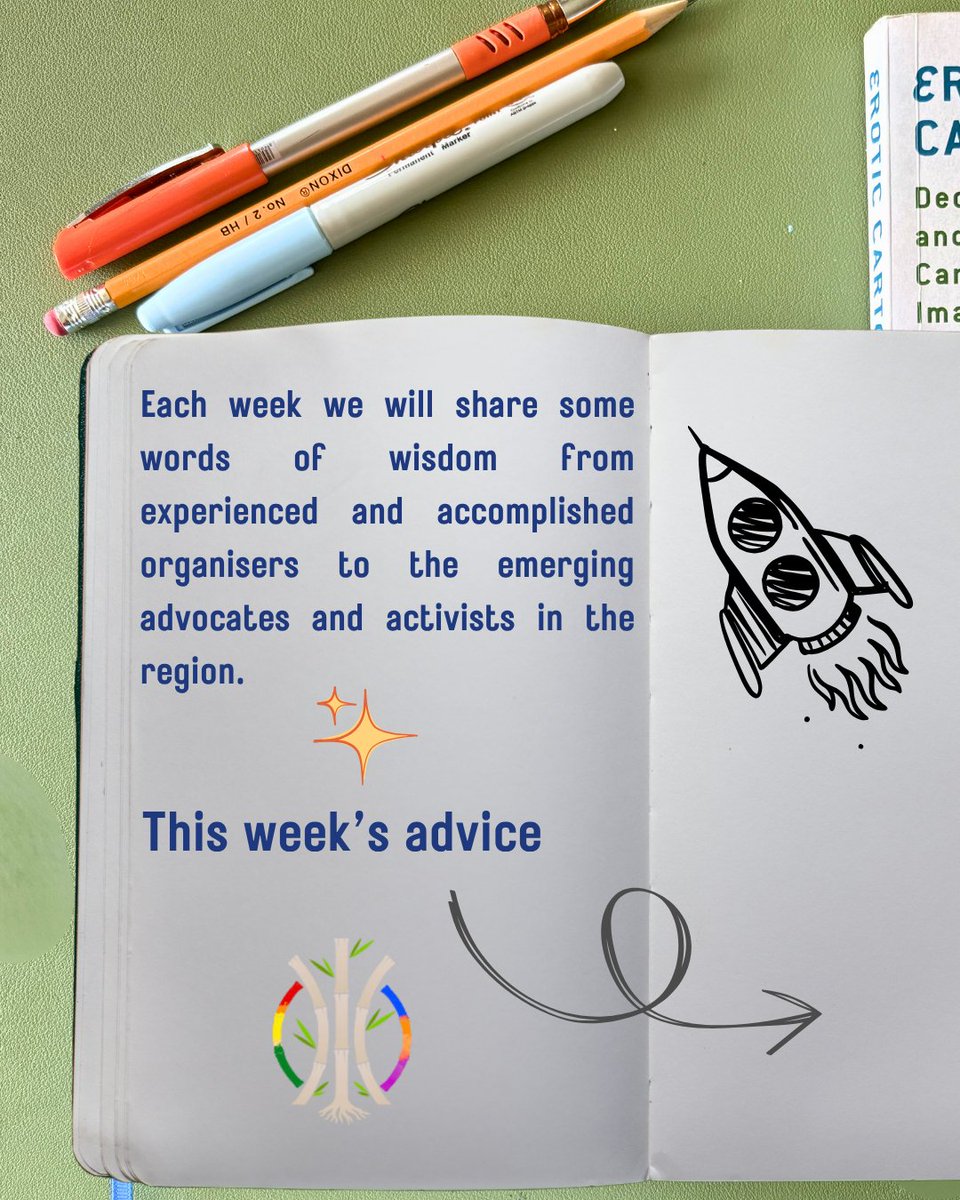 DIXON®
No. 2 / HB
Marker
EROTIC
Each week we will share some
words of wisdom from
experienced and accomplished
organisers to the emerging
advocates and activists in the
region.
This week's advice